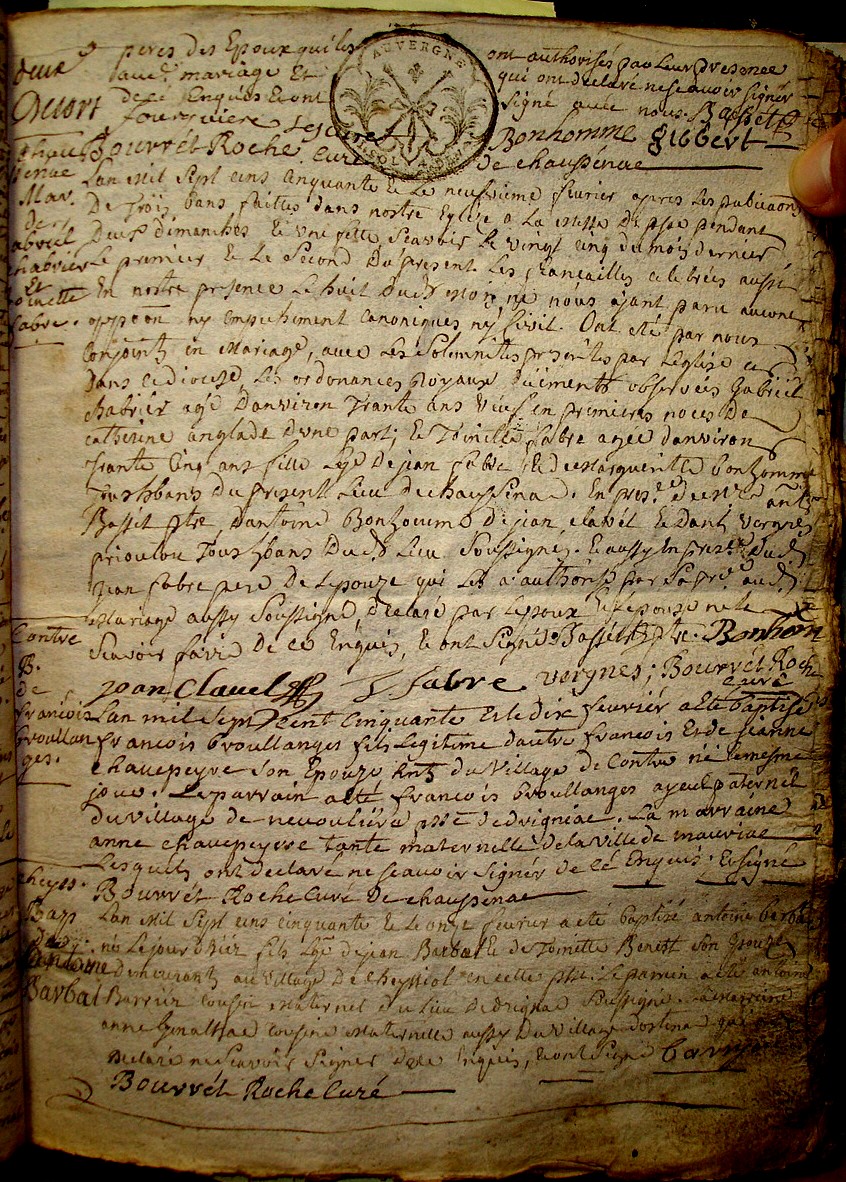 peres des Epoux qui les ont authorisés par leur presence
aud. mariage Et qui ont declaré ne scavoir signér
de cé Enquis et ont signé avec nous. Basset
fourniere Lescure Bonhomme gibbert
Bourrét Roche. Curé de chaussenac
AUVERGNE
Lan Mil Sept cens Cinquante Et Le neufvieme fevrier apres Les publications
De Trois bans faittes dans nostre Eglise a La Messe De psse pendant
Deux dimanches Et une fette, Scavoir Le vingt cinq du mois dernier
Le premier Et Le Second Du present Les fiancailles celebrées aussi
En nostre presence Le huit dud. mois ne nous ayant paru aucune
oppõon ny empechiment Canoniques ny Sivil. Ont eté par nous
Conjoints en Mariage, avec Les Solemnites prescrites par Leglise
dans ce diocese, Les ordonances Royaux duement observées Gabriel
chabrier agé Danviron Trante ans veuf en premieres noces De
catherine anglade dune part; Et Toinette fabre agée danviron
Trante Cinq ans fille Lge De jean fabre Et de Marguerite bonhomme
Tous hbans Du present Lieu de chaussenac. En presce de Mre
Basset ptre, Dantoine Bonhomme De jean clavel Et Dant. vergnes
priouiou Tous hbans Dud. Lieu Soussignes. Et aussy En presce Dud.
jean fabre pere De Lepouze qui La authorisé par Sa prce aud.
Mariage aussy Soussigné, declaré par Lepoux Et Lépouse ne Le
Scavoir faire de ce Enquis, Et ont Signé. Basset ptre. Bonhom
jean Clavel J. fabre vergnes; Bourrét Roche
curé
Lan mil sept cent cinquante Et le dix feuvriér a eté baptisé
francois broullanges fils Legitime dautre francois Et de jeanne
chauepeyre son Epouze hnts du village de Contre né lemesme
jour. Le parrain a eté francois broullanges ayeul paternél
du village de nevouliéra psse de drigniac. La marraine
anne chauepeyre tante maternelle de la ville de mauriac
Lesquels ont declaré ne scavoir signér de cé Enquis. Et signé
Bourrét Roche Curé De chaussenac
Lan Mil Sept cens cinquante Et Le onze fevrier a eté baptisé antoine barbat
né Le jour Dhier fils Lge de jean Barbat Et de Toinette Benest Son Epouze
demeurants au village De cheyssiol en cette psse. Le parrin a eté antoine
Barrier cousin Maternel du Lieu De drignac Soussigné. La Marraine
anne cousine Maternelle aussy Du village
Declaré ne Scavoir Signer De ce Enquis, Et ont Signé
Bourrét Roche Curé
deux
Mar.
de
gabriél
chabriér
Et
toinette
fabre.
Contre
B.
de
francois
broullan
ges.
cheyss.
Bap
de
antoine
Barbat